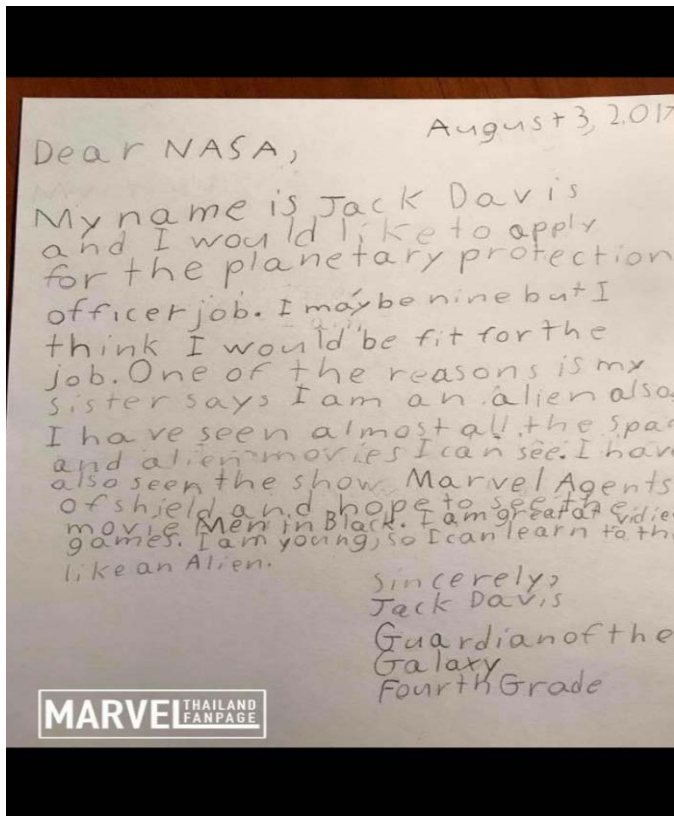 August 3, 2017
Dear NASA,
My name is Jack Davis
and I would like to apply
for the planetary protection
officer job. I may be nine but I
think I would be fit for the
job. One of the reasons is my
sister says I am an alien also
I have seen almost all the spac
and alien movies I can see. I have
also seen the show Marvel Agents
of shield and hope to see the
movie Men in Black. I am great at vidie
games. I am young, so I can learn to th
like an Alien.
Sincerely,
Jack Davis
Guardian of the
Galaxy
Fourth Grade
MARVEL THAILAND FANPAGE